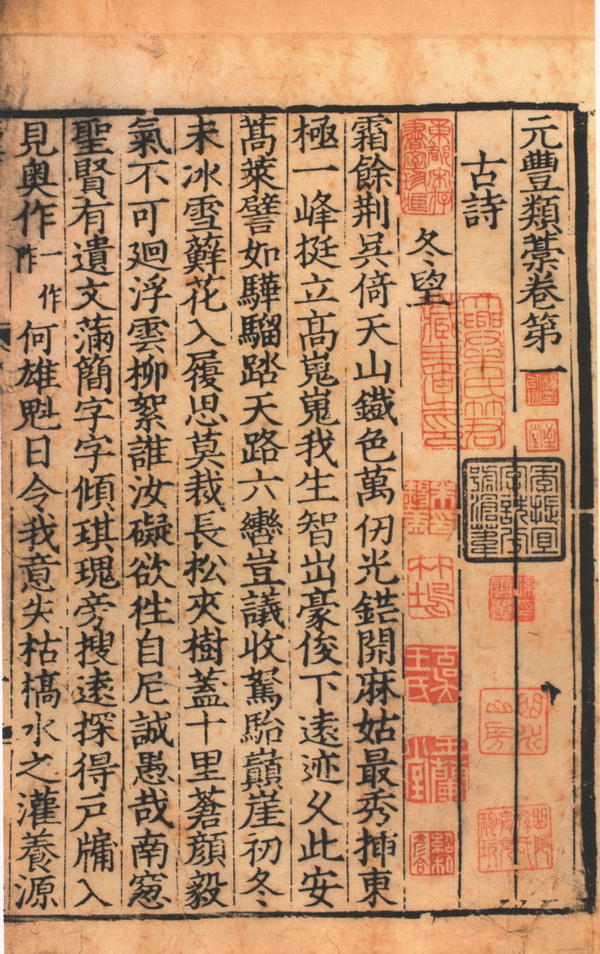 元豐類藁卷第一
古詩
冬望
竹塢
古吳王氏
玉蘭堂
霜餘荆吳倚天山鐵色萬仞光錯開麻姑最秀揷東
極一峰挺立高嵬嵬我生智出豪俊下遠迹久此安
蒿萊譬如驊騮踏天路六轡豈議收駑駘巔崖初冬
未冰雪蘚花入履思莫裁長松夾樹蓋十里蒼顏毅
氣不可廻浮雲柳絮誰汝礙欲往自尼誠愚哉南窓
聖賢有遺文滿簡字字傾琪瑰旁搜遠探得戸牖入
見奥作一作阼何雄魁日令我意失枯槁水之灌養源